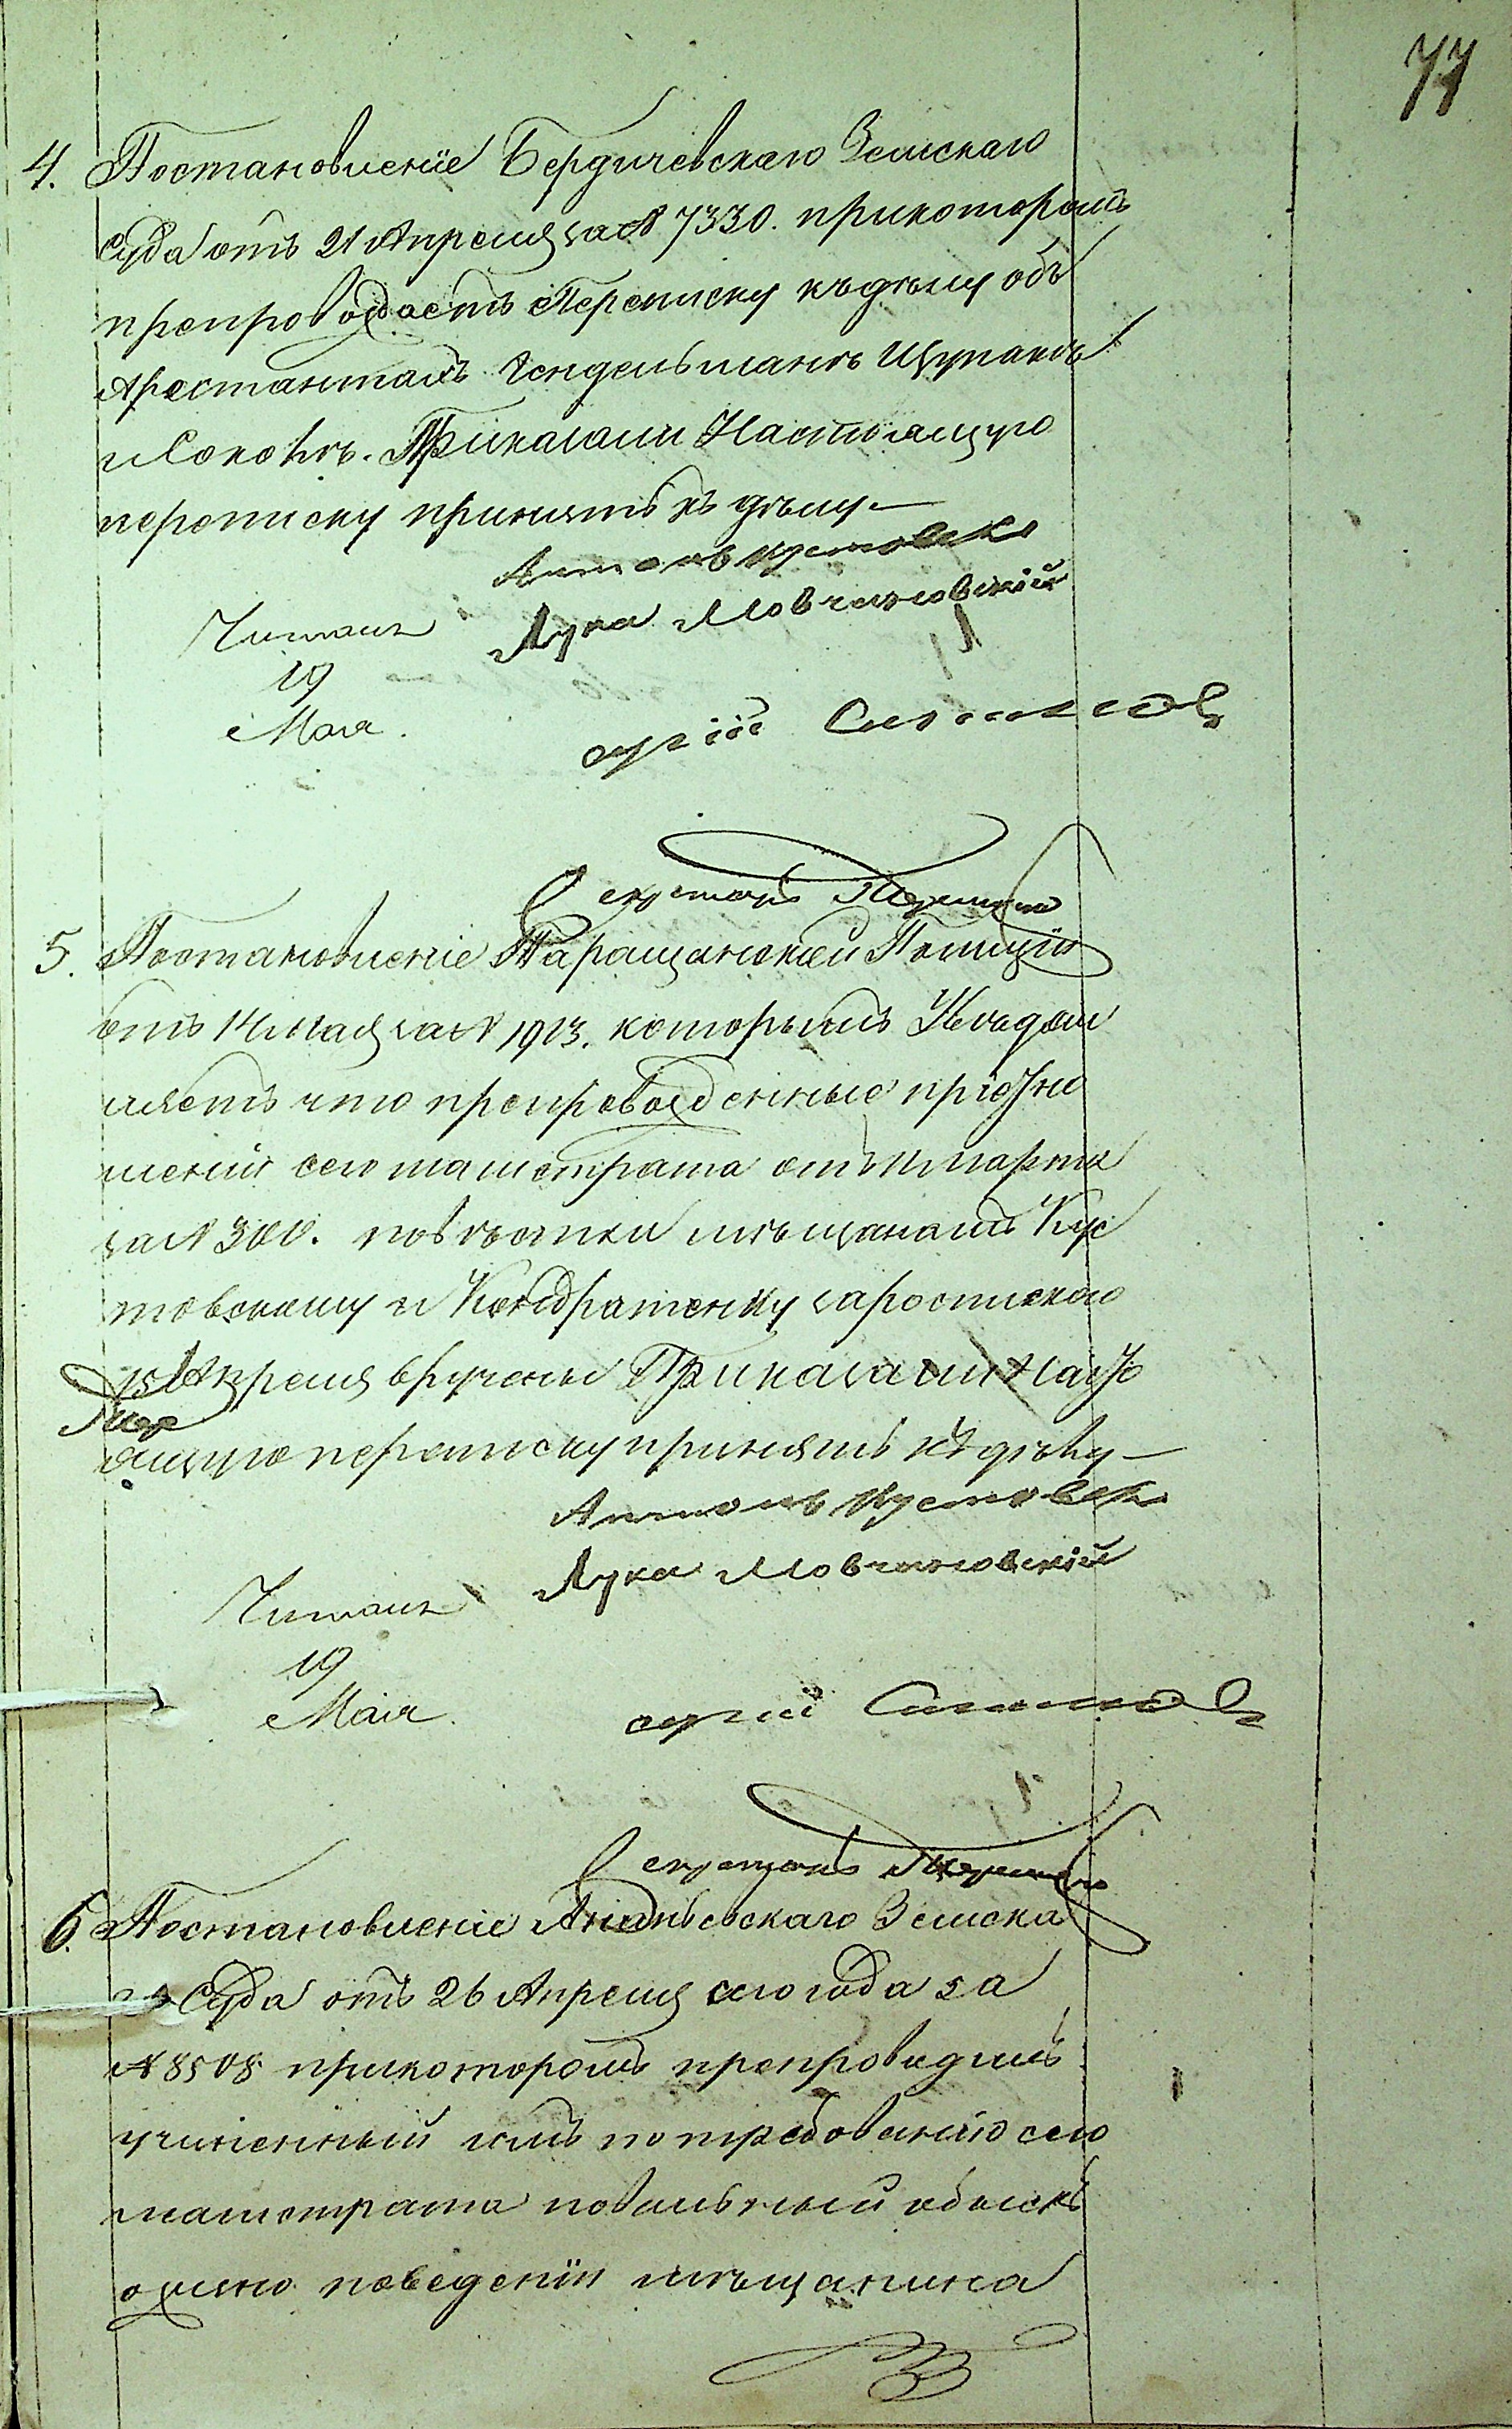 77
4. Постановленіе Бердичевскаго Земскаго
Суда отъ 21 Апреля за № 7330. прикоторомъ
препровождаетъ Переписку къ дѣлу объ
Арестантахъ Гендельманѣ Щупакѣ
и Соколѣ. Приказали Настоящую
переписку принять къ дѣлу —
Антонъ Кустовск
Лука Мовчановскій
Читалъ
19
Мая.
Секретарь
5. Постановленіе Таращанской Полиціи
отъ 14 Мая за № 1913. которымъ Увѣдом
ляетъ что препровожденные приотно
шеніи сего магистрата отъ 11 марта
за № 300. повѣстки мѣщанамъ Кус
товскому и Кондратенку зароспискою
15 Апреля вручены Приказали Насто
ящую переписку принять къ дѣлу —
Антонъ Кустовск
Лука Мовчановскій
Читалъ
19
Мая.
Секретарь
6. Постановленіе Ананьевскаго Земска
го Суда отъ 26 Апреля сего года за
№ 8508 прикоторомъ препроводилъ
учиненный имъ по требованію сего
магистрата повальный обыскъ
о поведеніи мѣщанина